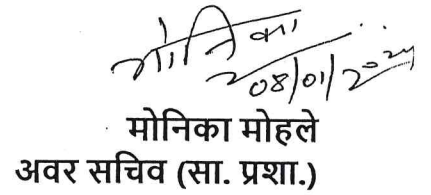 मोनिका
08/01/2024
मोनिका मोहले
अवर सचिव (सा. प्रशा.)